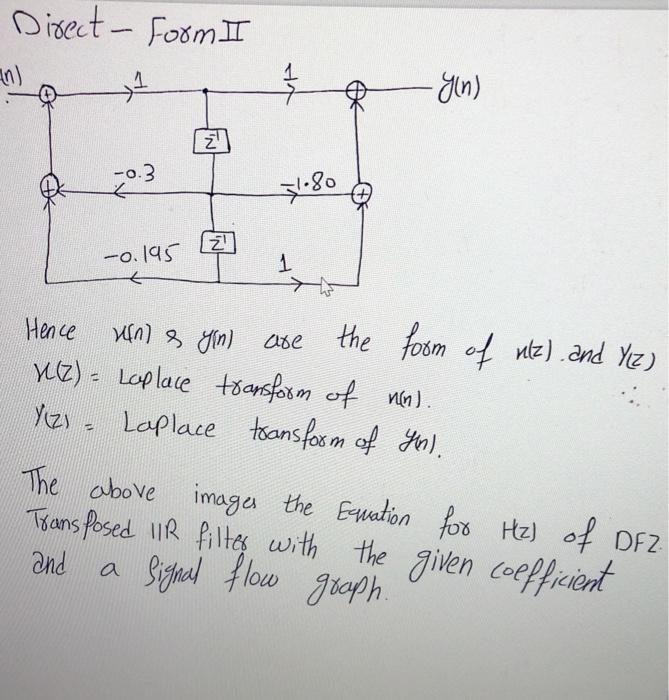 Direct - Form II
(n) 1 1 y(n)
z⁻¹
-0.3 -1.80
-0.195 z⁻¹ 1
Hence x(n) & y(n) are the form of x(z) and Y(z)
x(z) = Laplace transform of x(n).
Y(z) = Laplace transform of y(n).
The above images the Equation for H(z) of DF2
Transposed IIR filter with the given coefficient
and a signal flow graph.